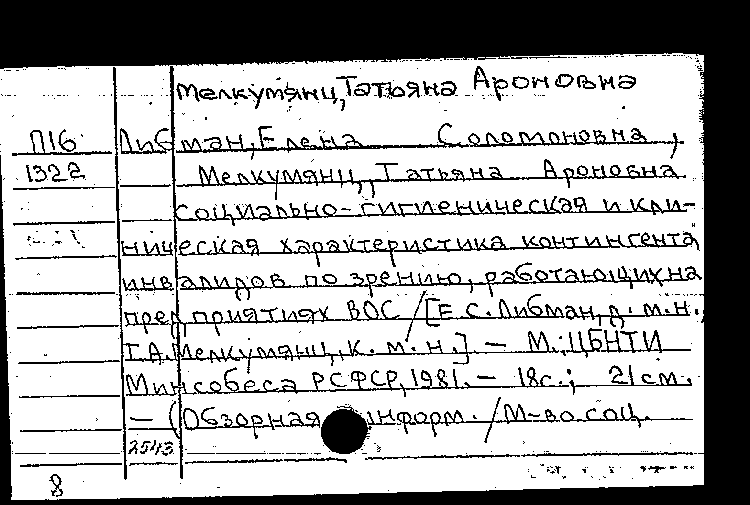 Мелкумянц, Татьяна Ароновна
П16 Либман, Елена Соломоновна,
1322 Мелкумянц, Татьяна Ароновна
Социально-гигиеническая и кли-
ническая характеристика контингента
инвалидов по зрению, работающих на
предприятиях ВОС / [Е.С. Либман, д. м. н.,
Т.А. Мелкумянц, к. м. н.] — М.: ЦБНТИ
Минсобеса РСФСР, 1981. — 18с.; 21 см.
— (Обзорная информ. / М-во соц.
2543
8